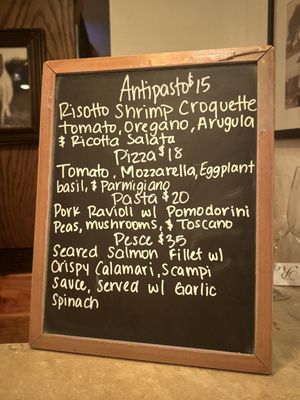 Antipasto $15
Risotto Shrimp Croquette
tomato, Oregano, Arugula
& Ricotta Salata
Pizza $18
Tomato, Mozzarella, Eggplant
basil, & Parmigiano
Pasta $20
Pork Ravioli w/ Pomodorini
Peas, mushrooms, & Toscano
Pesce $35
Seared Salmon Fillet w/
Crispy Calamari, Scampi
Sauce, Served w/ Garlic
Spinach